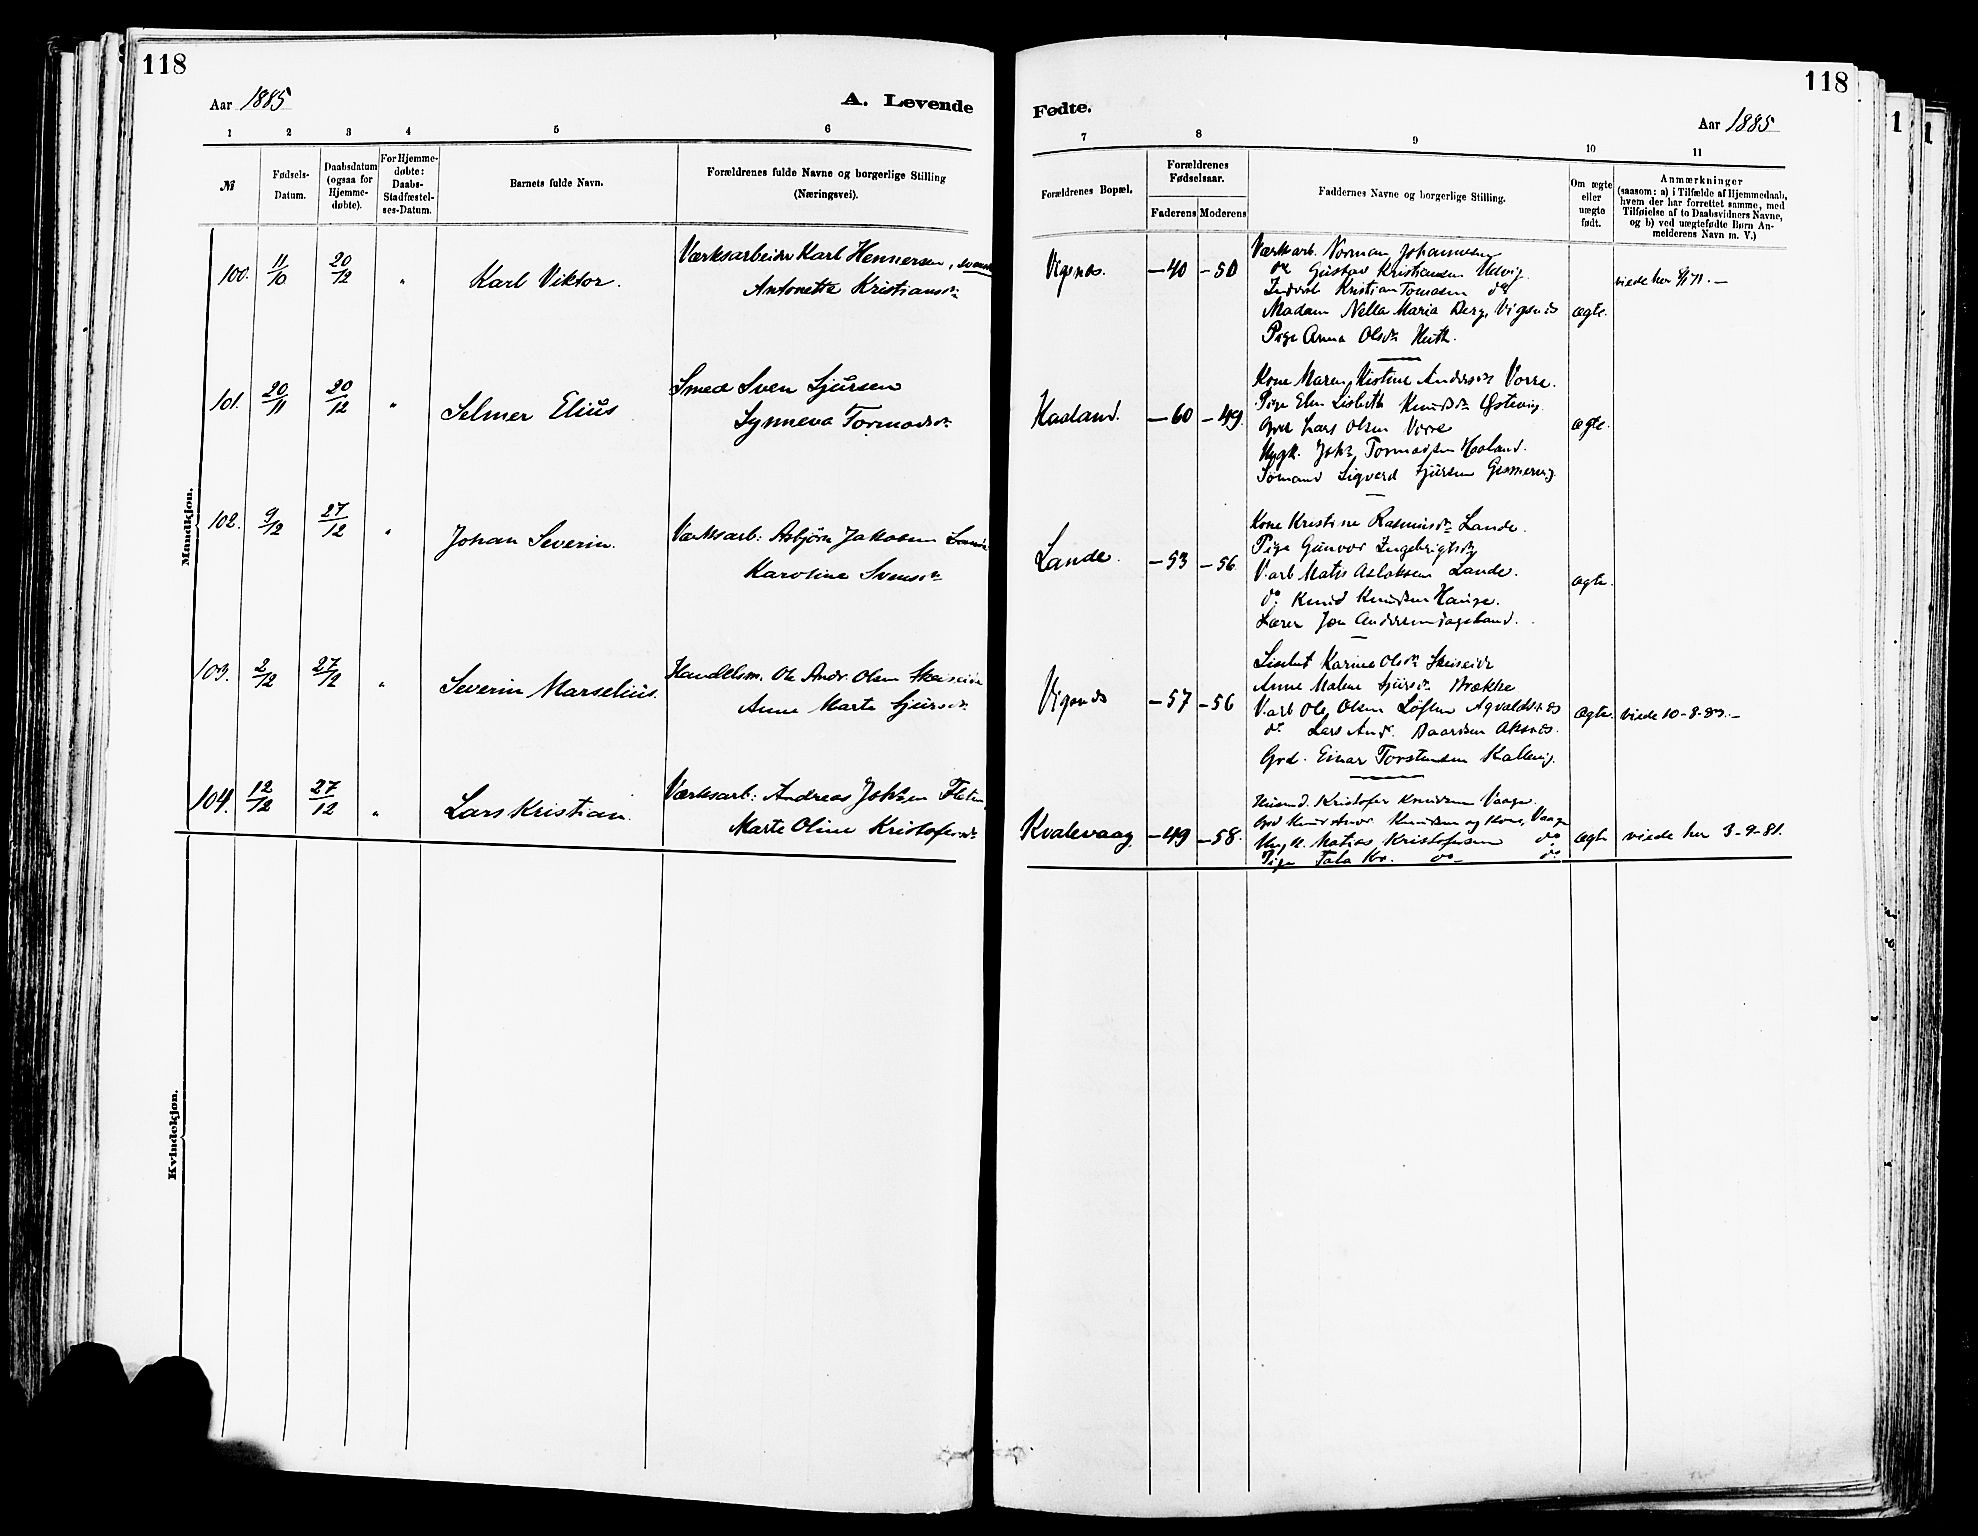 118
Aar 1885
A. Levende
1 2 3 4 5 6
№
Fødsels-Datum.
Daabsdatum (ogsaa for Hjemme-døbte).
For Hjemme-døbte: Daabs-Stadfæstel-ses-Datum.
Barnets fulde Navn.
Forældrenes fulde Navne og borgerlige Stilling
(Næringsvei).
Mandkjøn.
100. 11/10 20/12 " Karl Viktor. Værksarbeider Karl Hennersen, svensk
Antonette Kristiansdr
101. 20/11 20/12 " Selmer Elius Smed Sven Sjursen
Synneva Tormodsdr
102. 9/12 27/12 " Johan Severin. Værksarb: Asbjørn Jakobsen
Karoline Svensdr
103. 2/12 27/12 " Severin Marselius. Handelsm. Ole Andr. Olsen Skeiseid
Anne Marta Sjursdr
104. 12/12 27/12 " Lars Kristian. Værksarb: Andreas Johsen
Marte Oline Kristofersdr
Kvindekjøn.
118
Fødte.
Aar 1885
7 8 9 10 11
Forældrenes Bopæl.
Forældrenes Fødselsaar.
Faderens Moderens
Faddernes Navne og borgerlige Stilling.
Om ægte eller uægte født.
Anmærkninger
(saasom: a) i Tilfælde af Hjemmedaab,
hvem der har forrettet samme, med
Tilføielse af to Daabsvidners Navne,
og b) ved uægtefødte Børn An-
melderens Navn m. V.)
Vigsnes. –40 –50 Værksarb. Norman Johannesen
do Gustav Kristiansen Udvig
Kristian Tomasen do
Madam Nella Maria Berg, Vigsnes ægte.
Pige Anna Olsdr
viede her
Haaland. –60 –49. Kone Maren Kistine Andersdr Vorre.
Pige Elen Lisbeth Knudsdr Østevig
Lars Olsen Vorre ægte.
Ungk. Johs Tormodsen Haaland.
Sømand Sigvard Sjursen
Lande. –53 –56 Kone Kristine Rasmusdr Lande.
Pige Gunvor Ingebrigtsdr
V.arb Mats Aslaksen Lande. ægte.
do. Knud Knudsen Hauge.
Lærer Jon Andersen
Vigsnes –57 –56 Lisebet Karine Olsdr Skeiseid
Anne Malene Sjursdr Brække
V.arb Ole Olsen Agvaldsnes ægte. viede 10-8-83.–
do Lars Andr. Baardsen Aksnes.
Grd. Einar Torstensen
Kvalevaag –49 –58. Husmd. Kristofer Knudsen Vaage.
Grd Knudsen og Kone, Vaage
Ungk. Matias Kristofersen do ægte viede her 3-9-81.
Pige Tala Kr. do do